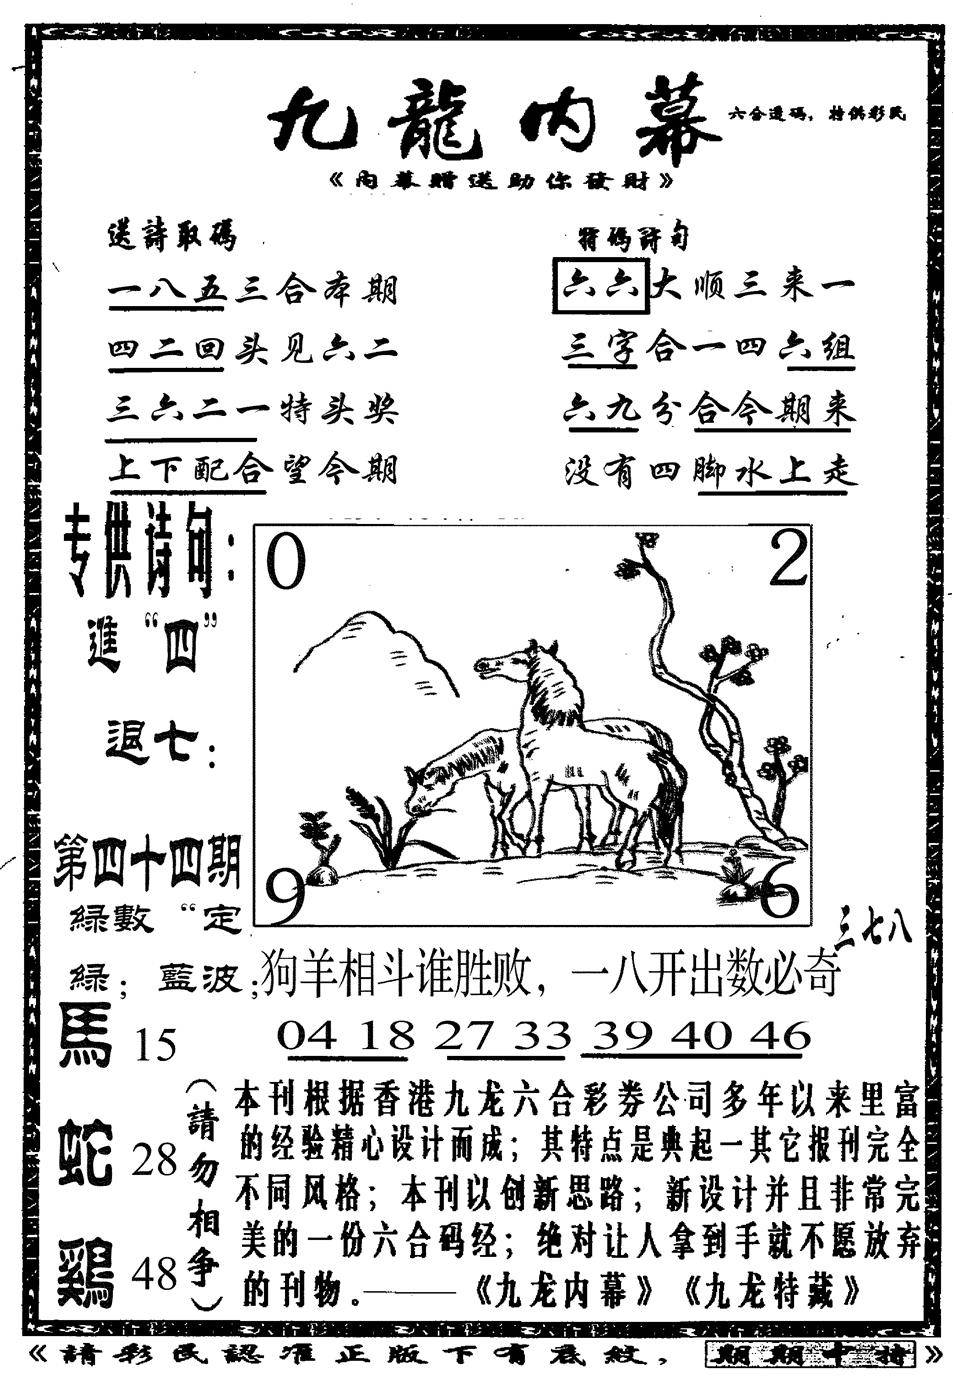 九龍内幕
六合透码，特供彩民
《内幕贈送助你發財》
送詩取碼
一八五三合本期
四二回头见六二
三六二一特头奖
上下配合望今期
特碼詩句
六六大顺三来一
三字合一四六组
六九分合今期来
没有四脚水上走
专供诗句：
進“四”
退七：
第四十四期
緑數“定
緑；藍波；
馬 15
蛇 28
鷄 48
0 2
9 6
三七八
狗羊相斗谁胜败，一八开出数必奇
04 18 27 33 39 40 46
（請勿相争）
本刊根据香港九龙六合彩券公司多年以来里富
的经验精心设计而成；其特点是典起一其它报刊完全
不同风格；本刊以创新思路；新设计并且非常完
美的一份六合码经；绝对让人拿到手就不愿放弃
的刊物。———《九龙内幕》《九龙特藏》
《請彩民認准正版下有底紋，期期中特》